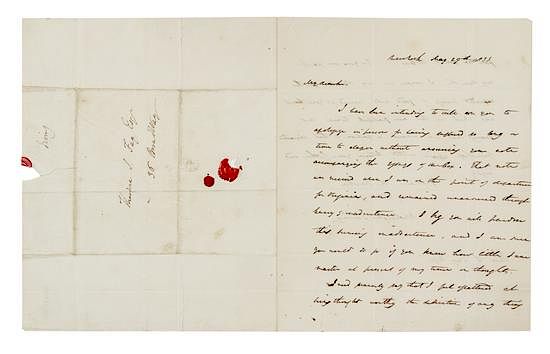 Theodore S. Fay Esqr
New York May 27th 1833
My dear Sir,
I have been intending to call on you to
apologize in person for having suffered so long a
time to elapse without answering your note
accompanying the
was received when I was on the point of departure
for Virginia, and remained unanswered through
hurry & inadvertence. I beg you will pardon
this seeming inadvertence, and I am sure
you would do so if you knew how little I am
master at present of my time or thoughts.
I need scarcely say that I feel flattered at
being thought worthy the dedication of any thing